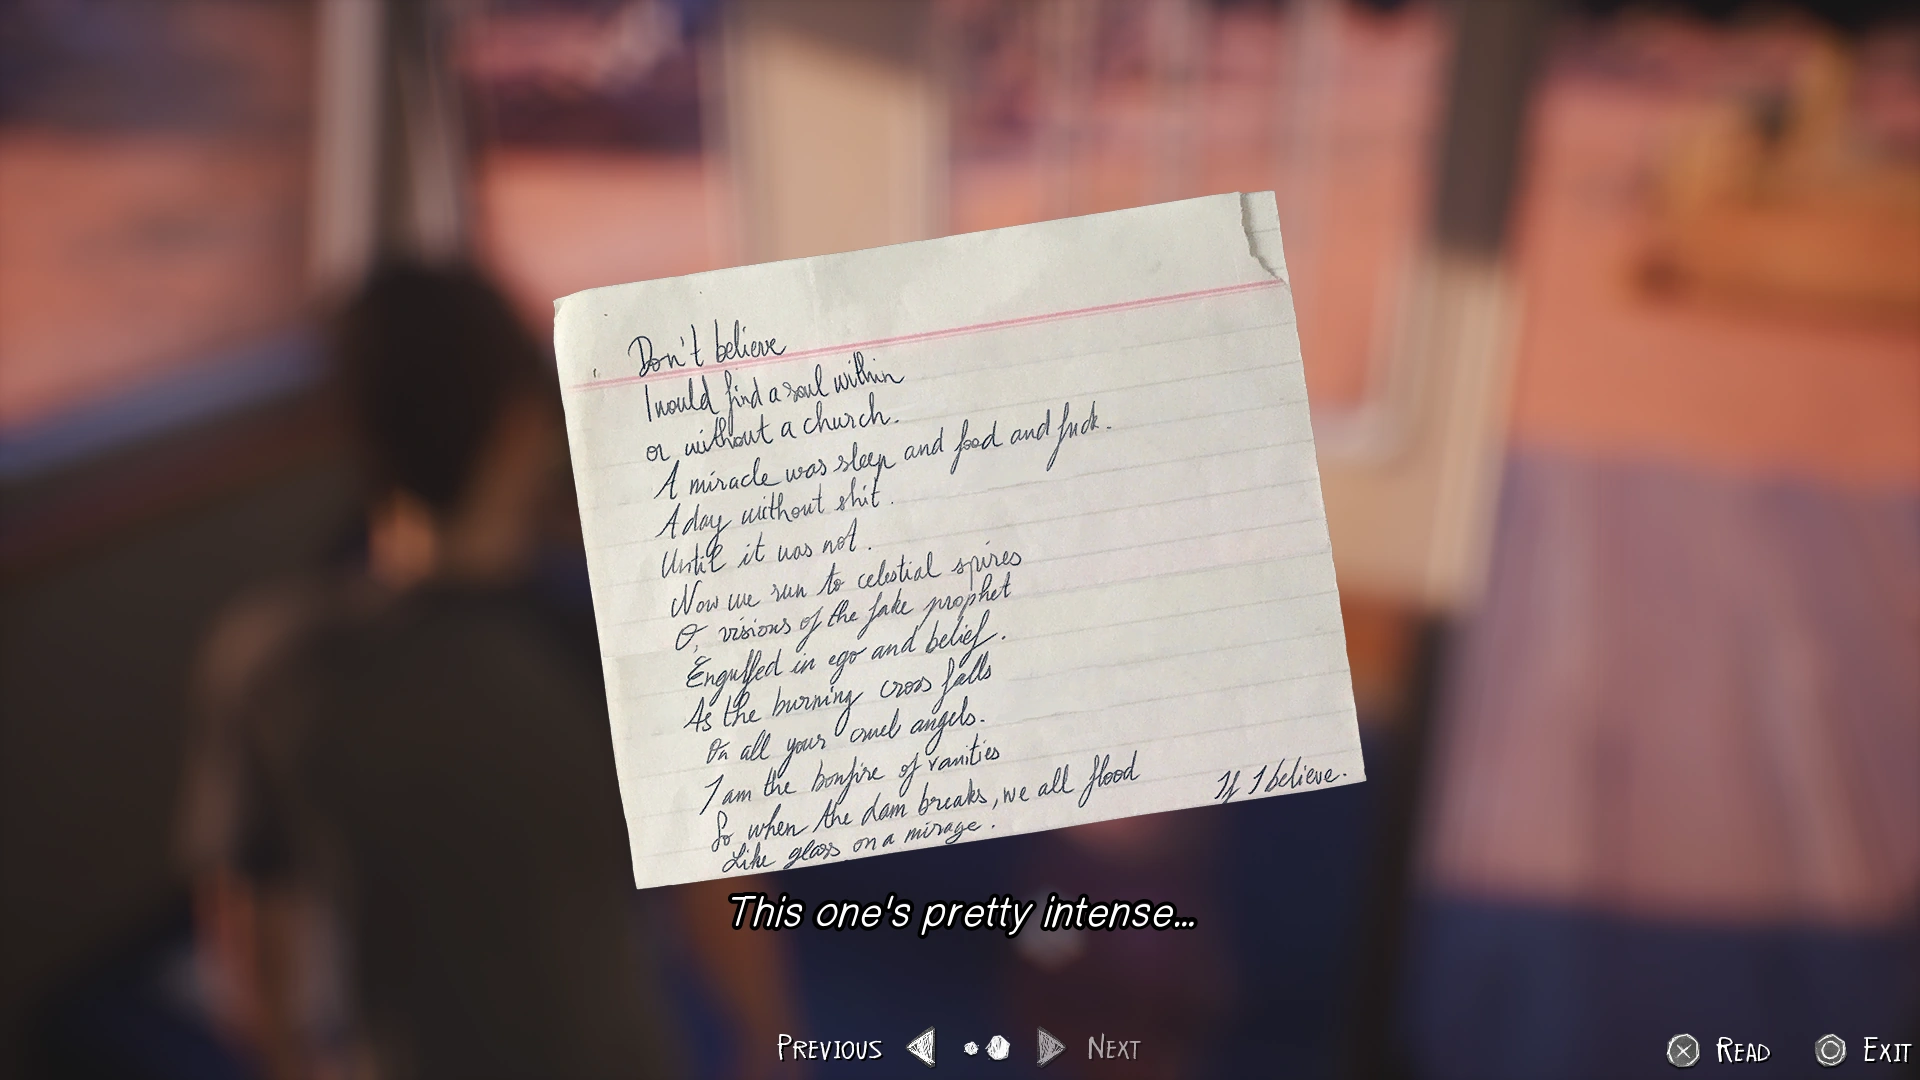 Don't believe
I would find a soul within
or without a church.
A miracle was sleep and food and fuck.
A day without shit.
Until it was not.
Now we run to celestial spires
O, visions of the fake prophet
Engulfed in ego and belief.
As the burning cross falls
On all your cruel angels.
I am the bonfire of vanities
So when the dam breaks, we all flood
Like glass on a mirage.
If I believe.
This one's pretty intense...
PREVIOUS NEXT
READ EXIT